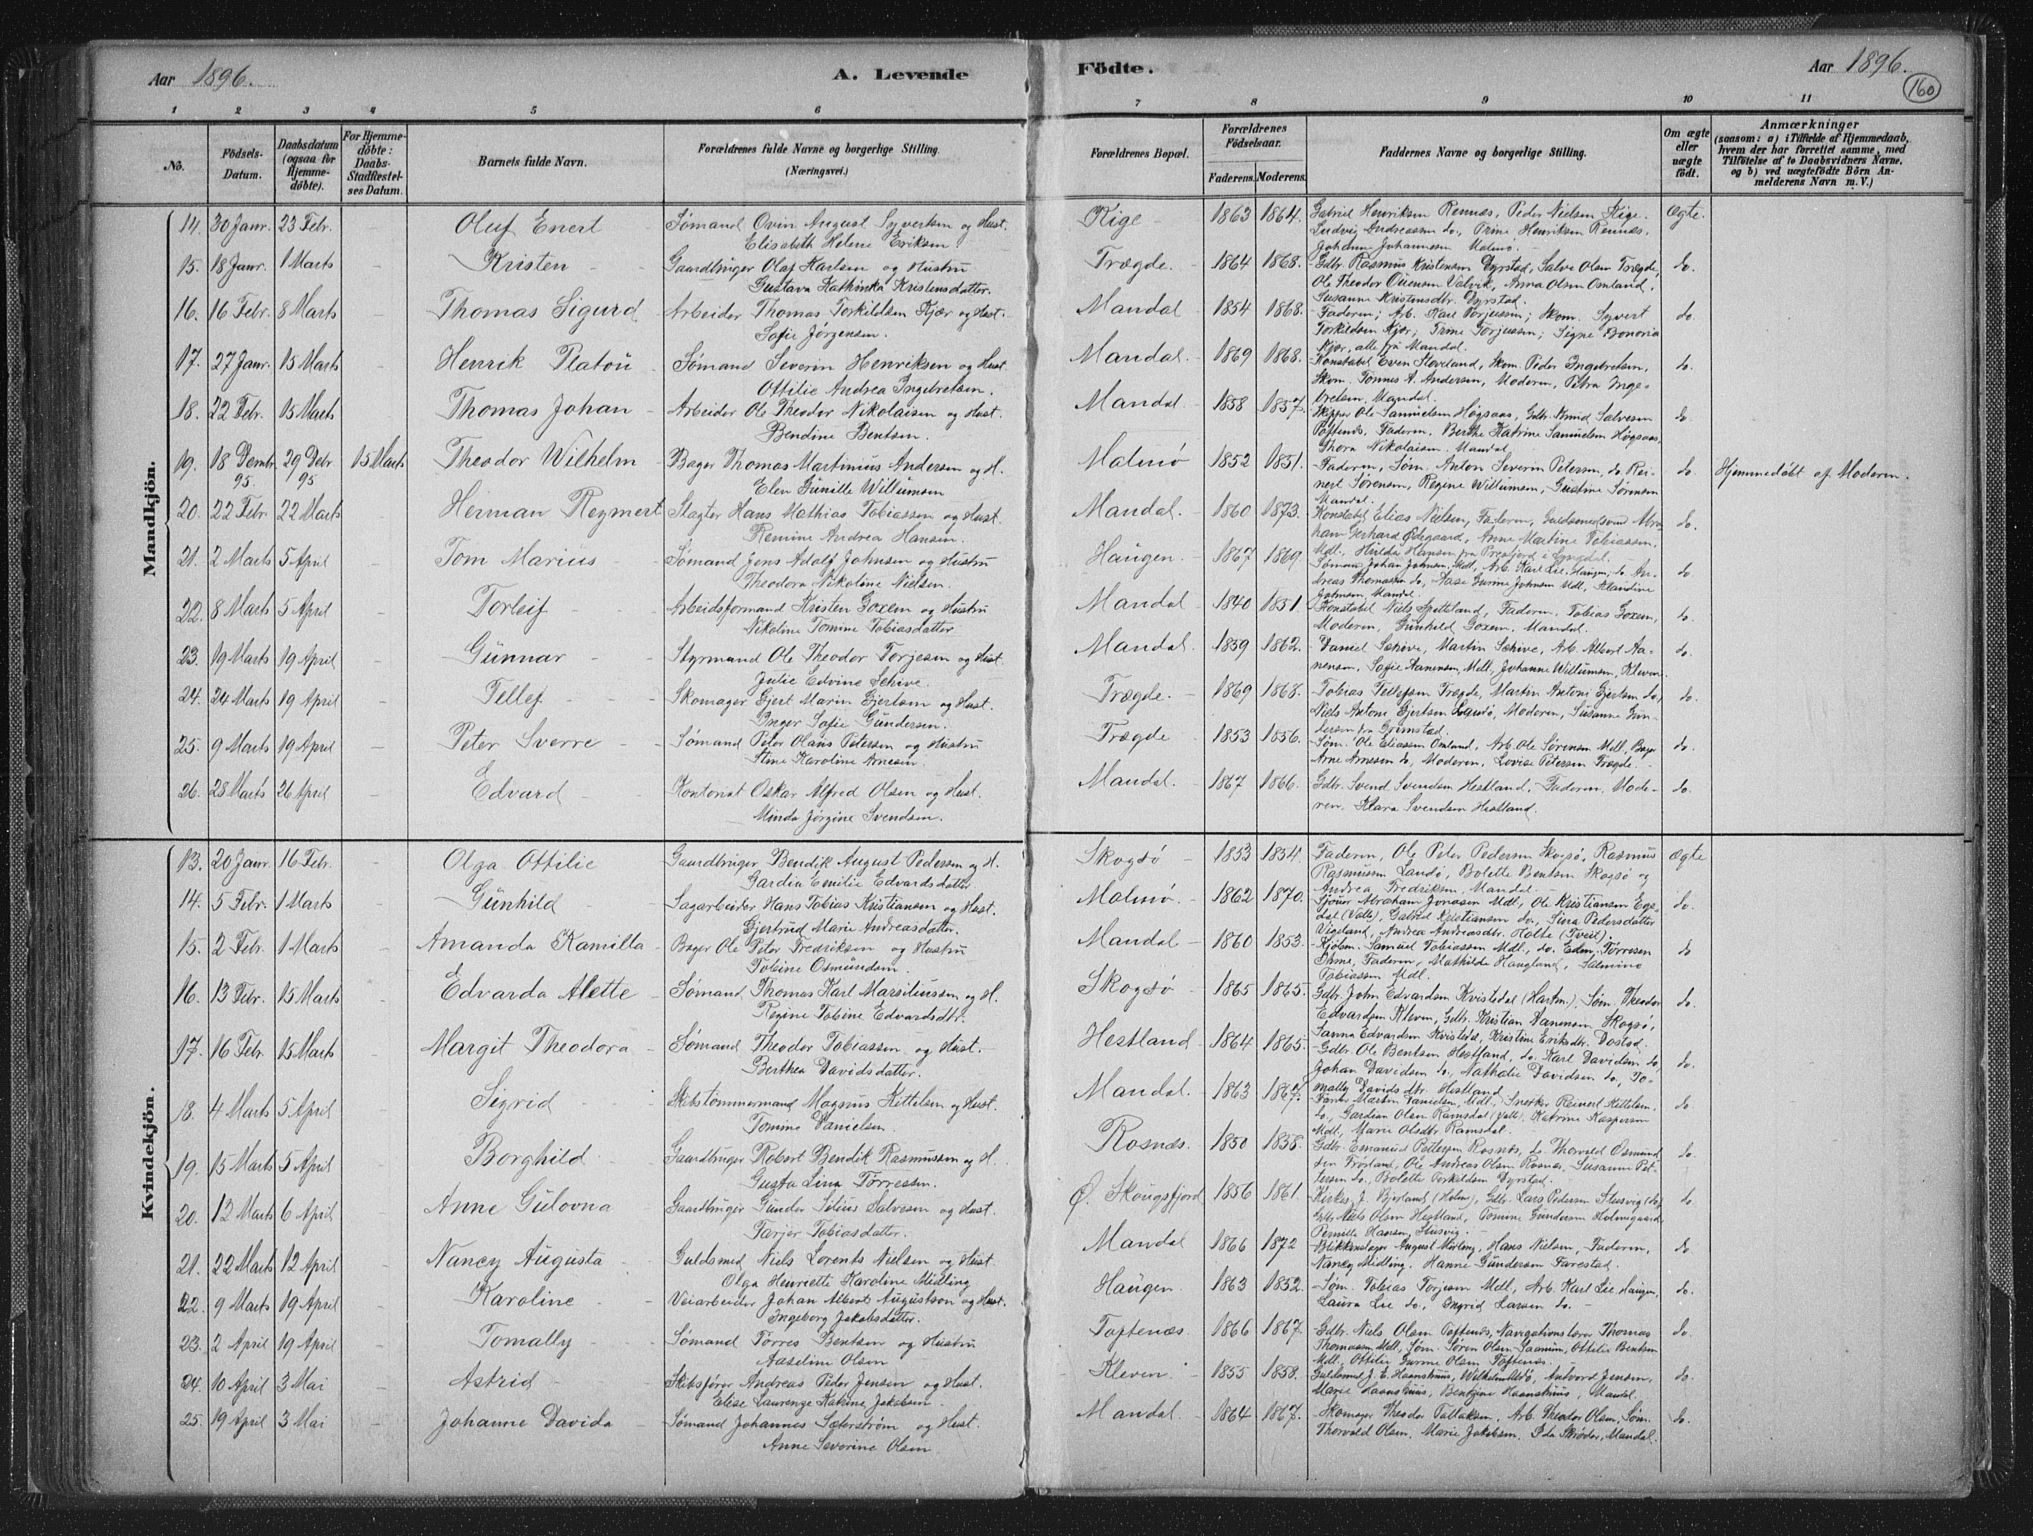 Aar 1896.
A. Levende Födte.
Aar 1896.
160
1 2 3 4 5 6 7 8 9 10 11
No.
Födsels-Datum.
Daabsdatum (ogsaa for Hjemme-döbte).
For Hjemme-döbte: Daabs-Stadfæstel-ses Datum.
Barnets fulde Navn.
Forældrenes fulde Navne og borgerlige Stilling. (Næringsvei.)
Forældrenes Bopæl.
Forældrenes Födselsaar.
Faderens. Moderens.
Faddernes Navne og borgerlige Stilling.
Om ægte eller uægte födt.
Anmærkninger
(saasom: a) i Tilfælde af Hjemmedaab, hvem der har forrettet samme, med Tilföielse af to Daabsvidners Navne. og b) ved uægtefödte Börn An-melderens Navn m. V.)
Mandkjön.
14. 30 Janr. 23 Febr. Oluf Enert Sømand Ovin August Syvertsen og Hust. Elisabeth Helene Eriksen Kige 1863 1864. Gabriel Henriksen Rennæs, Peder Nielsen Kige. Ludvig Andreassen do, Trine Henriksen Rennæs, Johanne Johannesen Malmø. Ægte.
15. 18 Janr. 1 Marts Kristen Gaardbruger Olaf Karlsen og Hustru Gustava Kathinka Kristensdatter. Trægde. 1864 1868. Gdbr. Rasmus Kristensen Dyrstad, Salve Olsen Trægde, Ole Theodor Valvik, Anna Olsen Omland, Susanne Kristensdtr. Dyrstad. do.
16. 16 Febr. 8 Marts Thomas Sigurd Arbeider Thomas Torkildsen Kjær og Hust. Sofie Jørgensen. Mandal 1854 1868. Faderen; Arb. Karl Torjussen; Skom. Syvert Torkildsen Kjær; Trine Torjussen; Signe Kjær, alle fra Mandal. do
17. 27 Janr. 15 Marts Henrik Platou Sømand Severin Henriksen og Hust. Ottilie Andrea Ingebretsen. Mandal. 1869 1868. Konstabel Even Støveland, Skom. Peder Ingebretsen, Skom. Tønnes A. Andersen, Moderen, Petra Inge-bretsen Mandal. do.
18. 22 Febr. 15 Marts Thomas Johan Arbeider Ole Theodor Nikolaisen og Hust. Bendine Bentsen. Mandal 1858 1857. Skipper Ole Samuelsen Høgsaas, Gdbr. Knud Salvesen Toftenes, Faderen, Berthe Katrine Samuelsen Høgsaas, Thora Nikolaisen Mandal. do
19. 18 Dembr. 95. 29 Debr 95 15 Marts Theodor Wilhelm Bager Thomas Martinius Andersen og H. Elen Gunille Willumsen Malmø 1852 1851. Faderen, Søm. Anton Severin Petersen, do Rei-nert Sørensen, Regine Willumsen, Gustine Sørensen Mandal. do. Hjemmedøbt af Moderen.
20. 22 Febr. 22 Marts Herman Reymert Slagter Hans Mathias Tobiassen og Hust. Remine Andrea Hansen. Mandal. 1860 1873. Konstabel Elias Nielsen, Faderen, Guldsmedsvend Abra ham Gerhard Ødegaard, Anne Martine Tobiassen, Mdl., Hulda Hansen fra i Lyngdal. do.
21. 2 Marts 5 April Tom Marius Sømand Jens Adolf Johnsen og Hustru Theodora Nikoline Nielsen. Haugen. 1867 1869. Sømand Johan Johnsen, Mdl., Arb. Karl Lie Haugen, do An-dreas Thomassen do, Aase Gurine Johnsen Mdl, Klandine Johnsen Mandal. do
22. 8 Marts 5 April Torleif Arbeidsformand Kristen Goxem og Hustru Nikoline Tomine Tobiasdatter Mandal 1840 1851. Konstabel Niels Spilleland, Faderen, Tobias Goxem, Moderen, Gunhild Goxem. Mandal. do.
23. 19 Marts 19 April Gunnar Styrmand Ole Theodor Torjesen og Hust. Julie Edvine Schive. Mandal. 1859 1862. Daniel Schive, Martin Schive, Arb. Albert Aa-nensen, Sofie Aanensen, Mdl, Johanne Willumsen, Kleven. do.
24. 24 Marts 19 April Tellef Skomager Gjert Marin Gjertsen og Hust. Inger Sofie Gundersen. Trægde. 1869 1868. Tobias Tellefsen Trægde, Martin Antoni Gjertsen do, Niels Antoni Gjertsen Skogsø, Moderen, Susanne Gun-dersen fra Grimstad. do.
25. 9 Marts 19 April Peter Sverre Sømand Peter Olaus Petersen og Hustru Stine Karoline Arnesen. Trægde 1853 1856. Søm. Ole Eliassen Omland, Arb. Ole Sørensen Mdl, Bager Arne Arnesen do, Moderen, Lovise Petersen Trægde. do.
26. 28 Marts 26 April Edvard Kontorist Oskar Alfred Olsen og Hust. Minda Jørgine Svendsen. Mandal. 1867 1866. Gdbr. Svend Svendsen Hestland, Faderen, Mode-ren, Klara Svendsen Hestland. do.
Kvindekjön.
13. 20 Janr. 16 Febr. Olga Ottilie Gaardbruger Bendik August Pedersen og H. Gardia Emilie Edvardsdatter Skogsø 1853 1854. Faderen, Ole Peter Pedersen Skogsø, Rasmus Rasmussen Landø, Bolette Bentsen Skogsø og Andrea Fredriksen, Mandal. ægte
14. 5 Febr. 1 Marts Gunhild Sagarbeider Hans Tobias Kristiansen og Hust. Gjertrud Marie Andreasdatter. Malmø. 1862 1870. Abraham Jonasen Mdl, Ole Kristiansen Egs-dal (Valle), Gabriel Kristiansen do, Sina Pedersdatter Vigeland, Andrea Andreasdtr. Holte (Tveit). do.
15. 2 Febr. 1 Marts Amanda Kamilla Bager Ole Peter Fredriksen og Hustru Tobine Osmundsen. Mandal 1860 1853. Kjøbm. Samuel Tobiassen Mdl., do. Edm. Tørresen Ihme, Faderen, Mathilde Haugland, Salmine Tobiassen Mdl. do
16. 13 Febr. 15 Marts Edvarda Alette Sømand Thomas Karl Marsiliussen og H. Regine Tobine Edvardsdtr. Skogsø 1865 1865. Gdbr. John Edvardsen Kvistedal (Hartm.), Søm. Theodor Edvardsen Kleven, Gdbr. Kristian Skogsø, Sanna Edvardsen Kvistedal, Kristine Eriksdtr. Dostad. do.
17. 16 Febr. 15 Marts Margit Theodora Sømand Theodor Tobiassen og Hust. Berthea Davidsdatter. Hestland 1864 1865. Gdbr. Ole Bentsen Hestland, do Karl Davidsen do, Johan Davidsen do, Nathalie Davidsen do, To-mally Davidsdtr. Hestland. do.
18. 4 Marts 5 April Sigrid Skibstømmermand Magnus Kittelsen og Hust. Tomine Danielsen. Mandal. 1863 1867. Martin Danielsen Mdl. Snekker Reinert Kittelsen do., Gardian Olsen Ramsdal (Valle), Katrine Kaspersen Mdl, Marie Olsdtr Ramsdal. do.
19. 15 Marts 5 April Borghild Gaardbruger Robert Bendik Rasmussen og H. Gusta Lina Tørressen. Rosnæs. 1850 1858. Gdbr. Emanuel Pettersen Rosnæs, do Thorvald Osmund sen Frøiland, Ole Andreas Olsen Rosnæs, Susanne Pet-tersen do, Bolette Torkildsen Dyrstad. do.
20. 12 Marts 6 April Anne Gulovna Gaardbruger Gunder Silius Salvesen og Hust. Tarjer Tobiasdatter. Ø. Skougsfjord 1856 1861. Kirkes. J. Bjerland (Holm), Gdbr. Lars Pedersen Stusvig (do), Gdbr. Niels Olsen Hestland, Tomine Gundersen Holmegaard, Pernille Hansen, Stusvig. do
21. 22 Marts 12 April Nancy Augusta Guldsmed Niels Lorents Nielsen og Hust. Olga Henriette Karoline Midling Mandal 1866 1872 Blikkenslager August Midling, Hans Nielsen, Faderen, Nancy Midling, Hanne Gundersen Farestad. do
22. 9 Marts 19 April Karoline Veiarbeider Johan Albert Augustson og Hust. Ingeborg Jakobsdatter. Haugen. 1863 1852. Søm. Tobias Torjesen Mdl, Arb. Karl Lie Haugen, Laura Lie do, Ingrid Larsen do. do.
23. 2 April 19 April Tomally Sømand Tørres Bentsen og Hustru Aaseline Olsen Toftenæs. 1866 1867. Gdbr. Niels Olsen Toftenæs, Navigationslærer Thomas Thomassen Mdl, Søm. Søren Olsen Saanum, Ottilie Bentsen Mdl, Ottilie Gurine Olsen Toftenæs. do.
24. 10 April 3 Mai Astrid Skibsfører Andreas Peder Jensen og Hust. Elise Laurenze Katrine Jakobsen. Kleven. 1855 1858. Guldsmed J. E. Haanshuus, Jensen, Marie Haanshuus, Bentzine Haanshuus, Mandal. do.
25. 19 April 3 Mai Johanne Davida Sømand Johannes Sæterstrøm og Hust. Anne Severine Olsen Mandal 1864 1867. Skomager Theodor Tallaksen, Arb. Theodor Olsen, Søm. Thorvald Olsen, Marie Jakobsen, Ida Skrøder, Mandal. do.